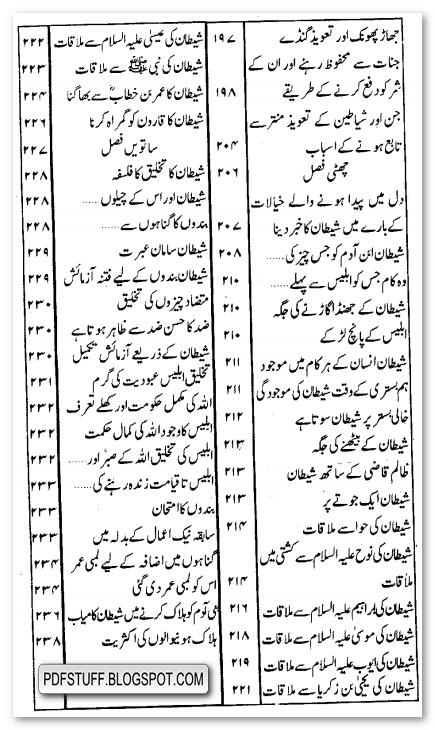 جھاڑ پھونک اور تعویذ گنڈے ۱۹۷
جنات سے محفوظ رہنے اور ان کے
شر کو دفع کرنے کے طریقے ۱۹۸
جن اور شیاطین کے تعویذ منتر سے
تابع ہونے کے اسباب ۲۰۴
چھٹی فصل ۲۰۶
دل میں پیدا ہونے والے خیالات
کے بارے میں شیطان کا خبر دینا ۲۰۷
شیطان ابن آدم کو جس چیز کی ..... ۲۰۸
وہ کام جس کو ابلیس سے پہلے ..... ۲۱۰
شیطان کے جھنڈا گاڑنے کی جگہ ۲۱۰
ابلیس کے پانچ لڑکے ۲۱۰
شیطان انسان کے ہر کام میں موجود ۲۱۱
ہم بستری کے وقت شیطان کی موجودگی ۲۱۱
خالی بستر پر شیطان سوتا ہے ۲۱۲
شیطان کے بیٹھنے کی جگہ ۲۱۳
ظالم قاضی کے ساتھ شیطان ۲۱۳
شیطان ایک جوتے پر ۲۱۳
شیطان کی حوا سے ملاقات ۲۱۴
شیطان کی نوح علیہ السلام سے کشتی میں
ملاقات ۲۱۴
شیطان کی ابراہیم علیہ السلام سے ملاقات ۲۱۶
شیطان کی موسیٰ علیہ السلام سے ملاقات ۲۱۸
شیطان کی ایوب علیہ السلام سے ملاقات ۲۱۹
شیطان کی یحییٰ بن زکریا سے ملاقات ۲۲۱
شیطان کی عیسیٰ علیہ السلام سے ملاقات ۲۲۲
شیطان کی نبی ﷺ سے ملاقات ۲۲۳
شیطان کا عمر بن خطابؓ سے بھاگنا ۲۲۴
شیطان کا قارون کو گمراہ کرنا ۲۲۶
ساتویں فصل ۲۲۷
شیطان کا تخلیق کا فلسفہ ۲۲۸
شیطان اور اس کے چیلوں ..... ۲۲۸
بندوں کا گناہوں سے ..... ۲۲۸
شیطان سامان عبرت ۲۲۹
شیطان بندوں کے لیے فتنہ آزمائش ۲۲۹
متضاد چیزوں کی تخلیق ۲۳۰
ضد کا حسن ضد سے ظاہر ہوتا ہے ۲۳۰
شیطان کے ذریعے آزمائش تکمیل ۲۳۰
تخلیق ابلیس عبودیت کی گرم ۲۳۱
اللہ کی مکمل حکومت اور کھلے تعرف ۲۳۲
ابلیس کا وجود اللہ کی کمال حکمت ۲۳۲
ابلیس کی تخلیق اللہ کے صبر اور ..... ۲۳۲
ابلیس تا قیامت زندہ رہنے کی ..... ۲۳۳
بندوں کا امتحان ۲۳۳
سابقہ نیک اعمال کے بدلہ میں ۲۳۳
گناہوں میں اضافہ کے لیے لمبی عمر ۲۳۴
اس کو لمبی عمر دی گئی ۲۳۴
بنی آدم کو ہلاک کرنے میں شیطان کامیاب ۲۳۶
ہلاک ہونیوالوں کی اکثریت ۲۳۸
PDFSTUFF.BLOGSPOT.COM